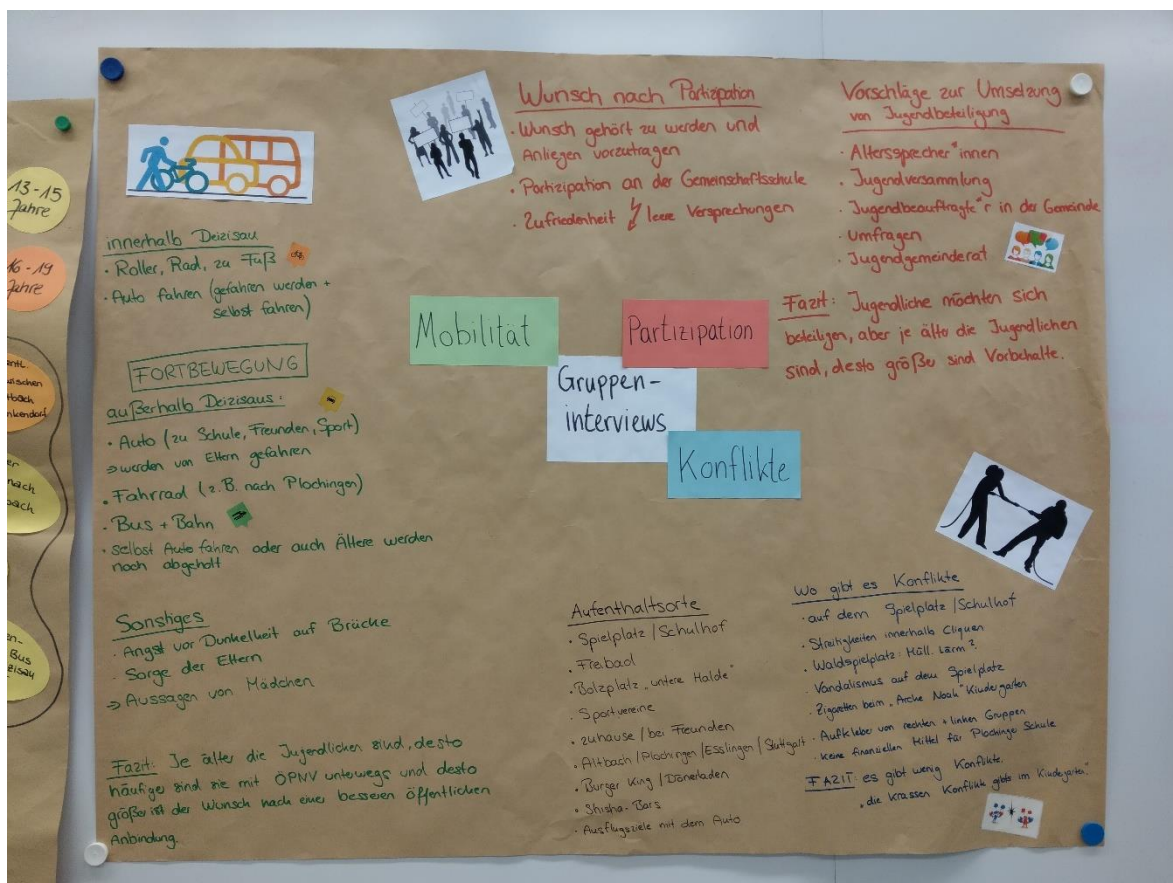 13-15
Jahre
16-19
Jahre
Bus
innerhalb Deizisau
· Roller, Rad, zu Fuß
· Auto fahren (gefahren werden +
selbst fahren)
FORTBEWEGUNG
außerhalb Deizisaus:
· Auto (zu Schule, Freunden, Sport)
→ werden von Eltern gefahren
· Fahrrad (z.B. nach Plochingen)
· Bus + Bahn
· selbst Auto fahren oder auch Ältere werden
noch abgeholt
Sonstiges
· Angst vor Dunkelheit auf Brücke
· Sorge der Eltern
→ Aussagen von Mädchen
Fazit: Je älter die Jugendlichen sind, desto
häufiger sind sie mit ÖPNV unterwegs und desto
größer ist der Wunsch nach einer besseren öffentlichen
Anbindung.
Mobilität
Partizipation
Gruppen-
interviews
Konflikte
Wunsch nach Partizipation
· Wunsch gehört zu werden und
Anliegen vorzutragen
· Partizipation an der Gemeinschaftsschule
· Zufriedenheit leere Versprechungen
Vorschläge zur Umsetzung
von Jugendbeteiligung
· Alterssprecher*innen
· Jugendversammlung
· Jugendbeauftragte*r in der Gemeinde
· Umfragen
· Jugendgemeinderat
Fazit: Jugendliche möchten sich
beteiligen, aber je älter die Jugendlichen
sind, desto größer sind Vorbehalte.
Aufenthaltsorte
· Spielplatz / Schulhof
· Freibad
· Bolzplatz „untere Halde"
· Sportvereine
· zuhause / bei Freunden
· Altbach / Plochingen / Esslingen / Stuttgart
· Burger King / Dönerladen
· Shisha-Bars
· Ausflugsziele mit dem Auto
Wo gibt es Konflikte
· auf dem Spielplatz / Schulhof
· Streitigkeiten innerhalb Cliquen
· Waldspielplatz: Müll, Lärm?
· Vandalismus auf dem Spielplatz
· Zigaretten beim „Arche Noah" Kindergarten
· Aufkleber von rechten + linken Gruppen
· keine finanziellen Mittel für Plochinger Schule
FAZIT: es gibt wenig Konflikte.
„die krassen Konflikte gibts im Kindergarten"